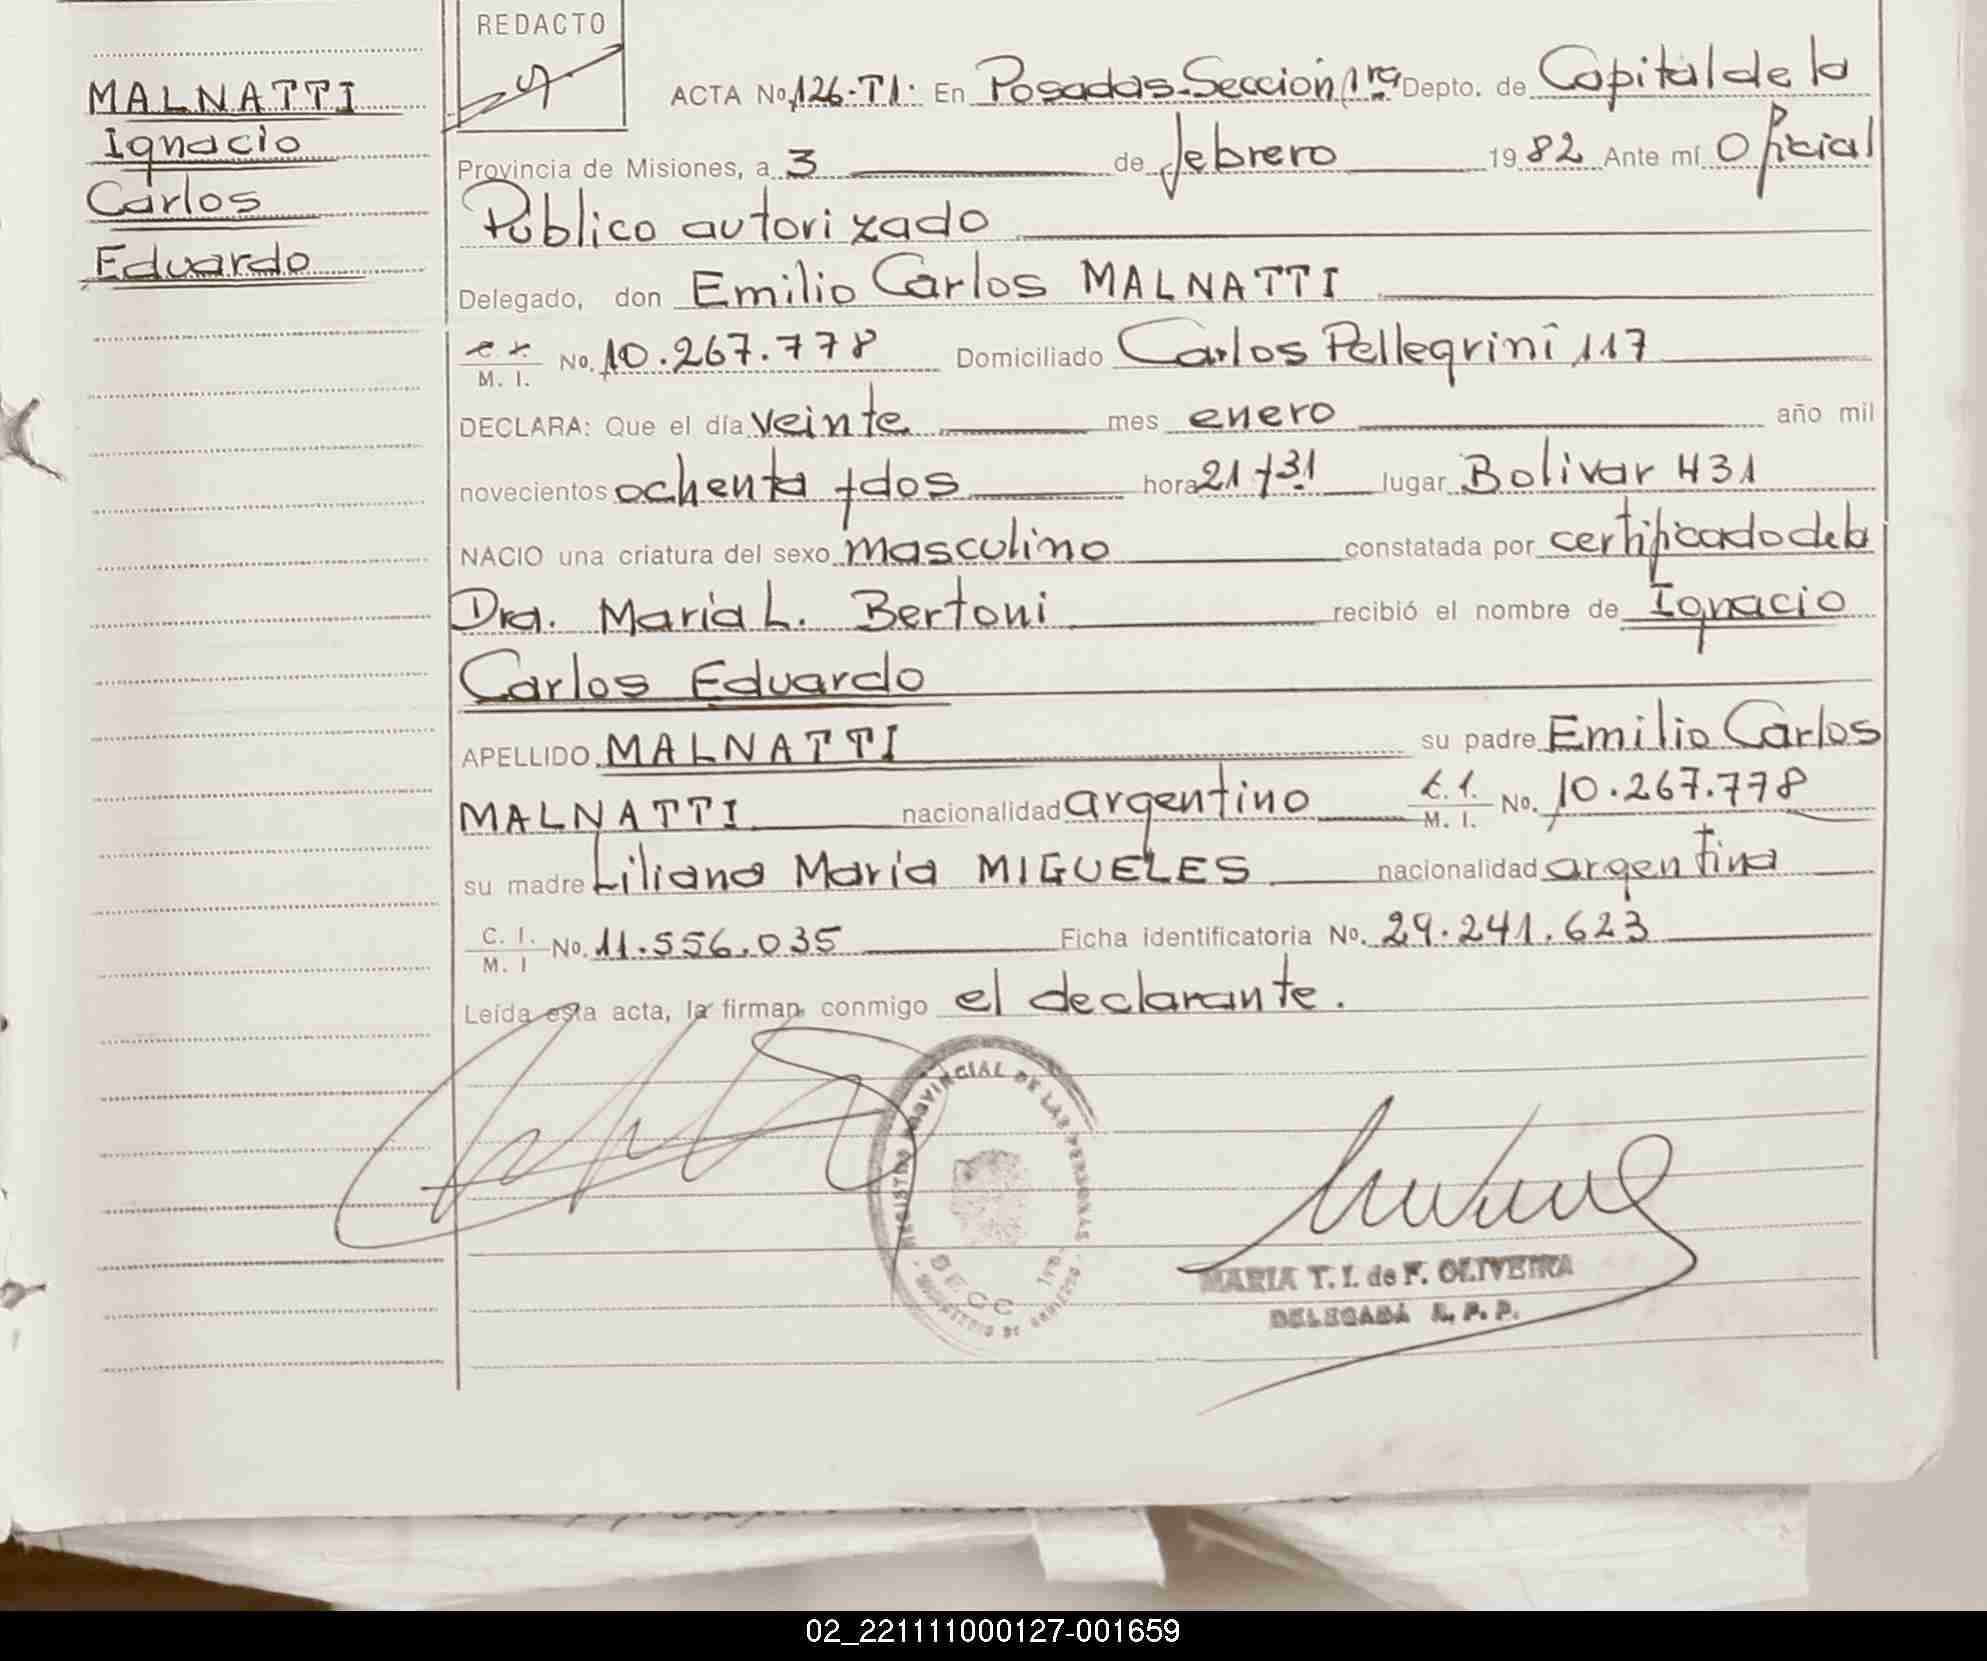 MALNATTI
Ignacio
Carlos
Eduardo
REDACTO
ACTA No. 126-T1. En Posadas-Sección 1ra Depto. de Capital de la
Provincia de Misiones, a 3 de febrero 1982 Ante mí Oficial
Público autorizado
Delegado, don Emilio Carlos MALNATTI
M. I. No. 10.267.778 Domiciliado Carlos Pellegrini 117
DECLARA: Que el día veinte mes enero año mil
novecientos ochenta y dos hora 21 y 31 lugar Bolivar 431
NACIO una criatura del sexo masculino constatada por certificado de la
Dra. María L. Bertoni recibió el nombre de Ignacio
Carlos Eduardo
APELLIDO MALNATTI su padre Emilio Carlos
MALNATTI nacionalidad argentino M. I. No. 10.267.778
su madre Liliana María MIGUELES nacionalidad argentina
C. I. M. I No. 11.556.035 Ficha identificatoria No. 29.241.623
Leída esta acta, la firman conmigo el declarante.
REGISTRO PROVINCIAL DE LAS PERSONAS
SECC 1ra
MINISTERIO DE GOBIERNO
MARIA T. I. de F. OLIVEIRA
DELEGADA R. P. P.
02_221111000127-001659